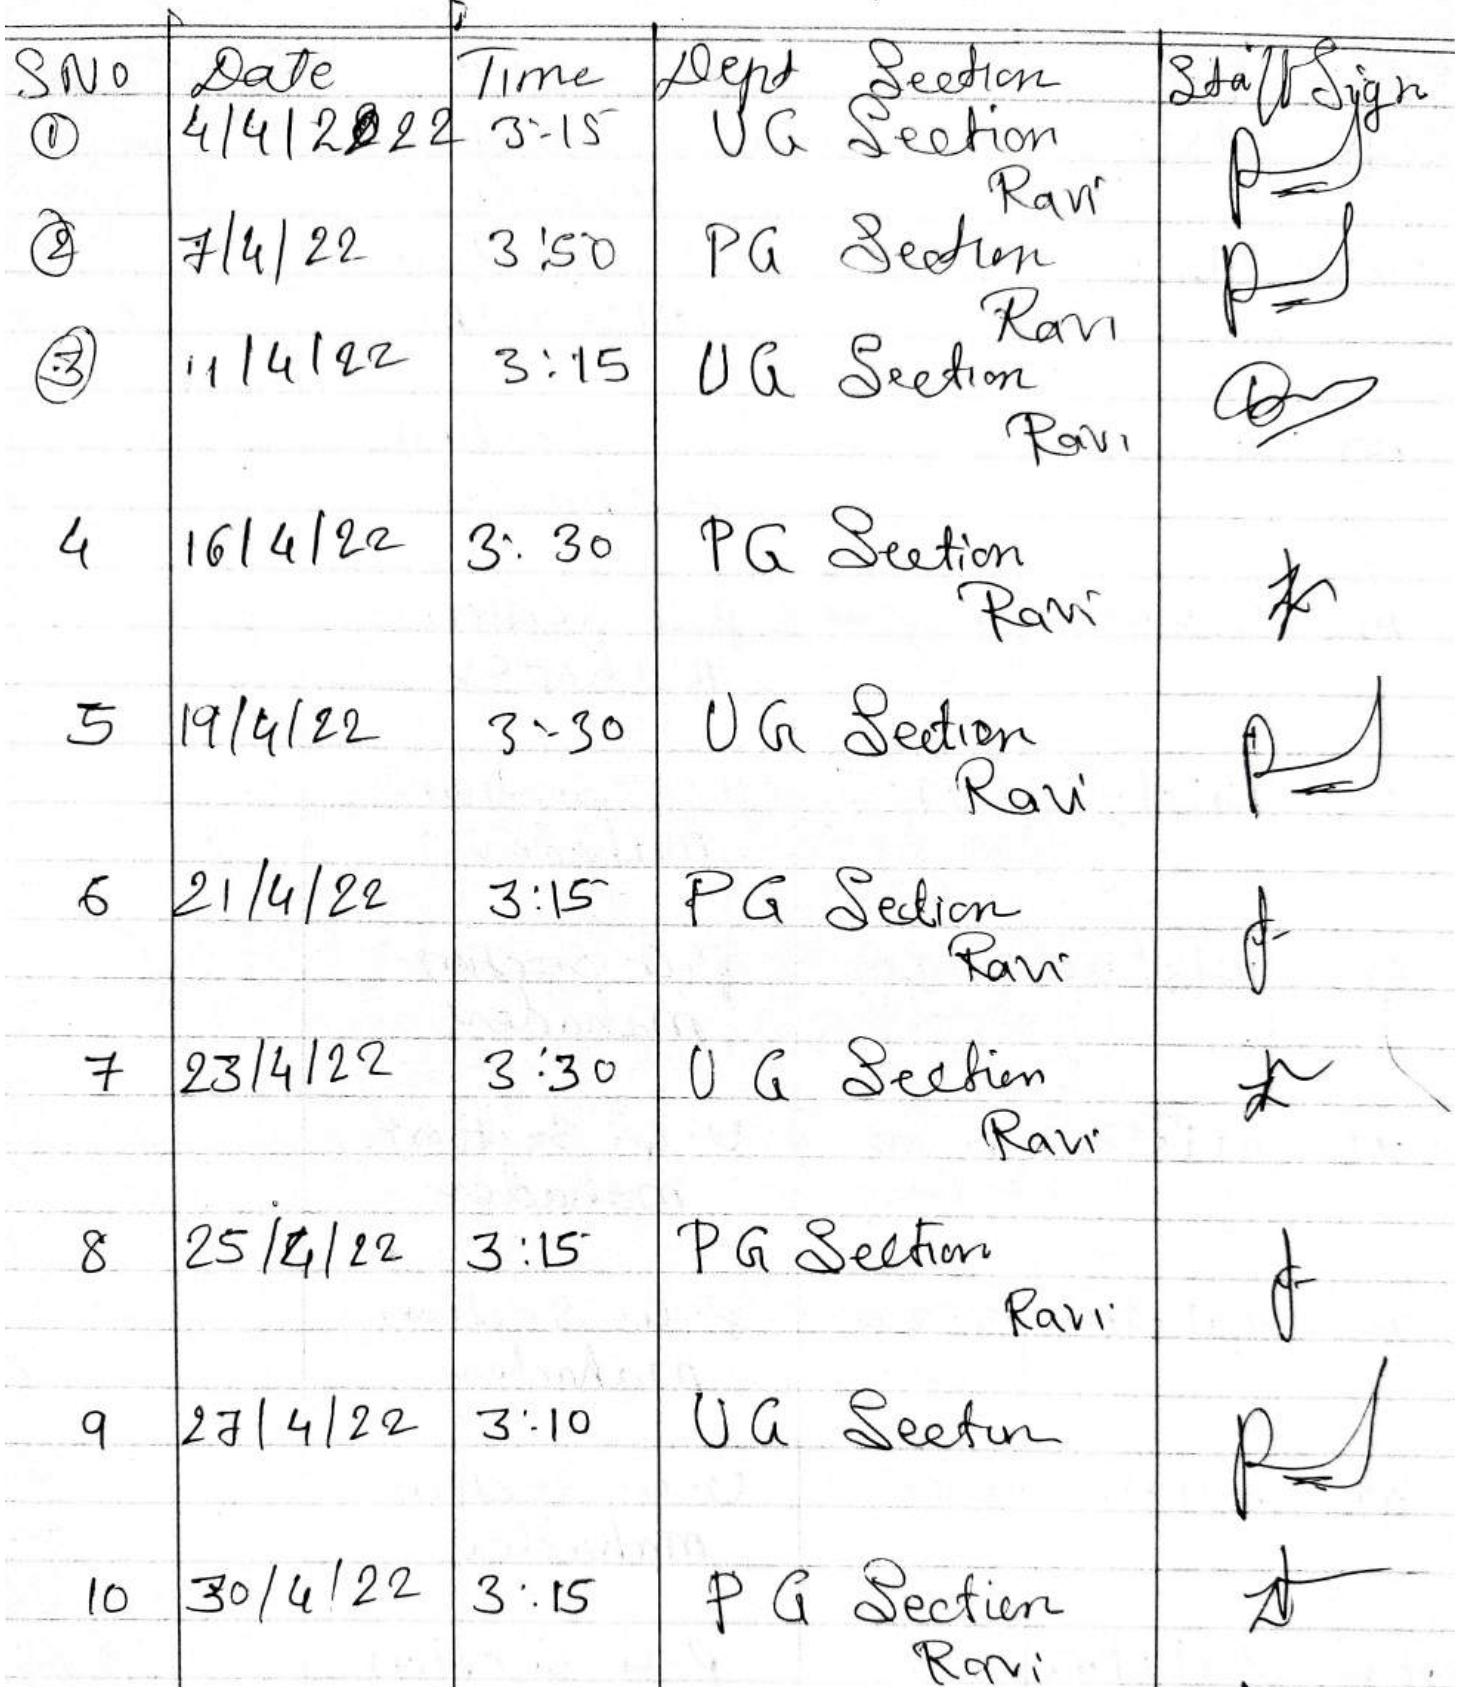 SNo Date Time Dept Section Staff Sign
1 4/4/2022 3:15 UG Section
Ravi
2 7/4/22 3:50 PG Section
Ravi
3 11/4/22 3:15 UG Section
Ravi
4 16/4/22 3:30 PG Section
Ravi
5 19/4/22 3:30 UG Section
Ravi
6 21/4/22 3:15 PG Section
Ravi
7 23/4/22 3:30 UG Section
Ravi
8 25/4/22 3:15 PG Section
Ravi
9 27/4/22 3:10 UG Section
10 30/4/22 3:15 PG Section
Ravi